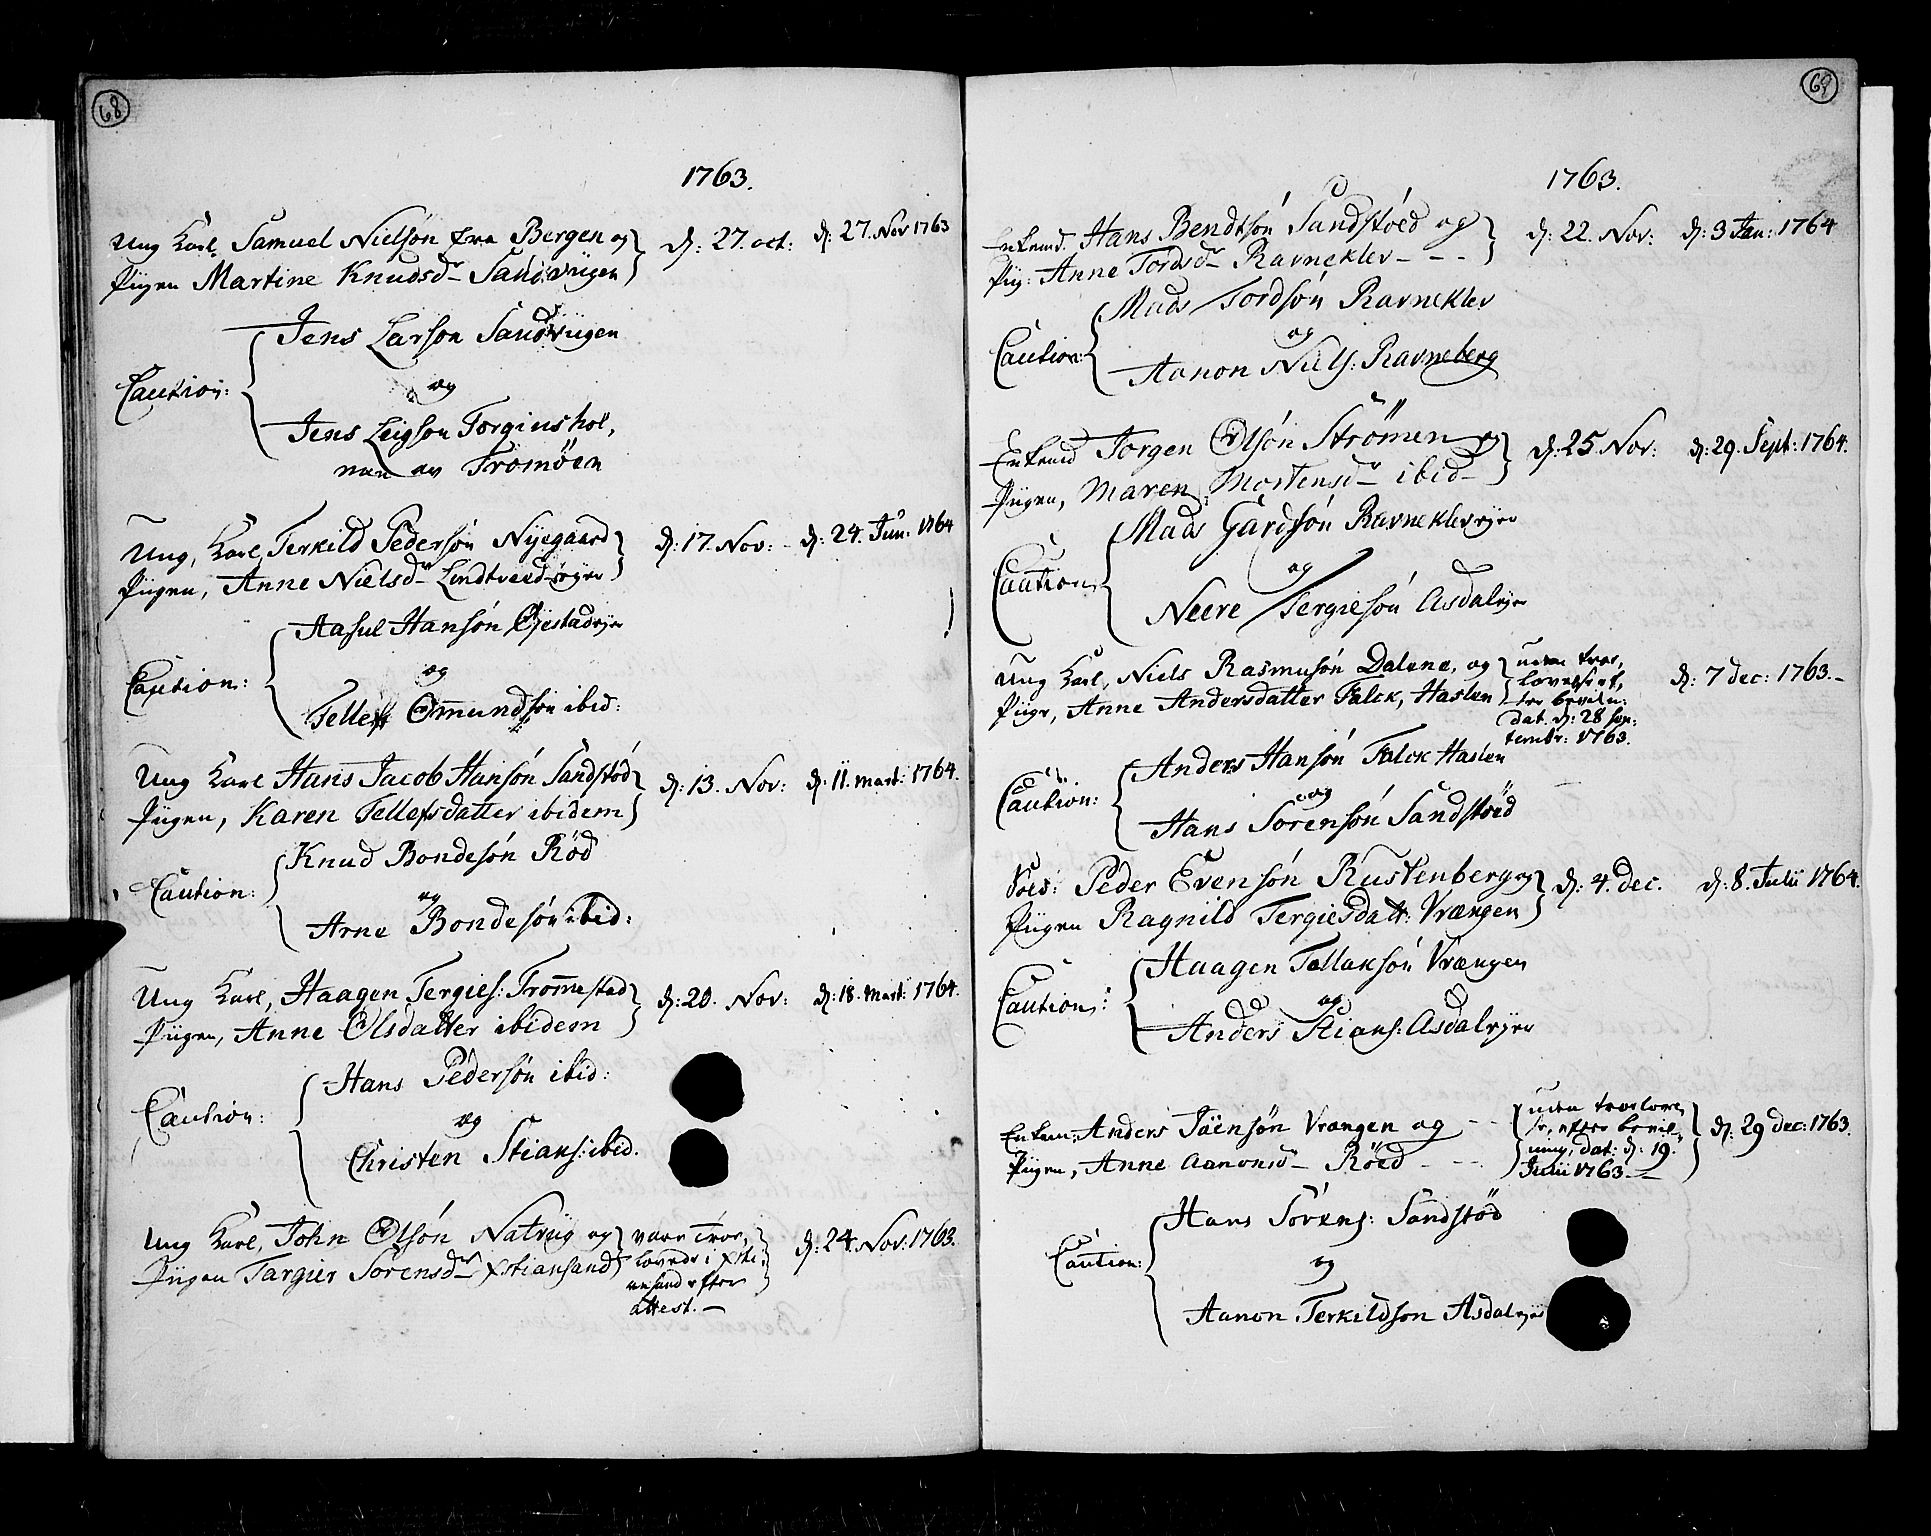 68
1763.
Ung Karl, Samuel Nielsón fra Bergen og
Piigen Martine Knudsdr Sandviigen
d: 27. oct:
d: 27. Nov 1763
Caution:
Jens Larson Sandviigen
og
Jens Leigson Torginshol,
men av Tromöen
Ung, Karl, Terkild Pedersón Nyegaard
Piigen, Anne Nielsdr Lindtveed
d: 17. Nov:
d: 24. Jun: 1764
Caution:
Aasul Hansón Øjestad
og
Tellefs Omundsón ibid:
Ung Karl Hans Jacob Hansón Sandstöd
Piigen, Karen Tellefsdatter ibidem
d: 13. Nov:
d: 11. Mart: 1764.
Caution:
Knud Bondesón Röd
og
Arne Bondesón ibid:
Ung Karl, Haagen Tergies: Trommestad
Piigen, Anne Olsdatter ibidem
d: 20. Nov:
d: 18. Mart: 1764.
Caution:
Hans Pedersón ibid:
og
Christen Stians: ibid.
Ung Karl, John Olsón Natvig og
Piigen Targier Sorensdr Xstiansand
vare Troe,
lovede i Xsti,
ansand efter
attest. —
d: 24. Nov: 1763.
69
1763.
Enkemd Hans Bendtsón Sandstöed og
Pig: Anne Tordsdr Ravneklev - - -
d: 22. Nov:
d: 3 Jan: 1764
Caution:
Mads Tordsón Ravneklev
og
Aanon Niels: Ravneberg
Enkemd Jorgen Olsón Strömen og
Piigen, Maren Mortensdr ibid
d: 25. Nov:
d: 29. Sept: 1764.
Caution:
Mads Gardsón Ravneklev
og
Neere Tergiesón Asdal
Ung Karl, Niels Rasmusón Dalene, og
Piige, Anne Andersdatter Falck, Haslen
uden troe,
lovelse ef,
ter beviln:
dat. d: 28 sep,
tembr: 1763.
d: 7 dec: 1763.
Caution:
Anders Hansón Falck Haslen
og
Hans Sorensón Sandstöed
Peder Evensón Rustenberg og
Piigen Ragnild Tergiesdatt: Vrængen
d: 4. dec.
d: 8. Julii 1764.
Caution:
Haagen Tellaksón Vrængen
og
Anders Stians: Asdal
Enkem: Anders Jöensón Vrængen og
Piigen, Anne Aanonsdr Röed
uden troelove,
se, efter bevil,
ning, dat: d: 19.
Julii 1763
d: 29 dec: 1763.
Caution:
Hans Sörens: Sandstöd
og
Aanon Terkildsón Asdal